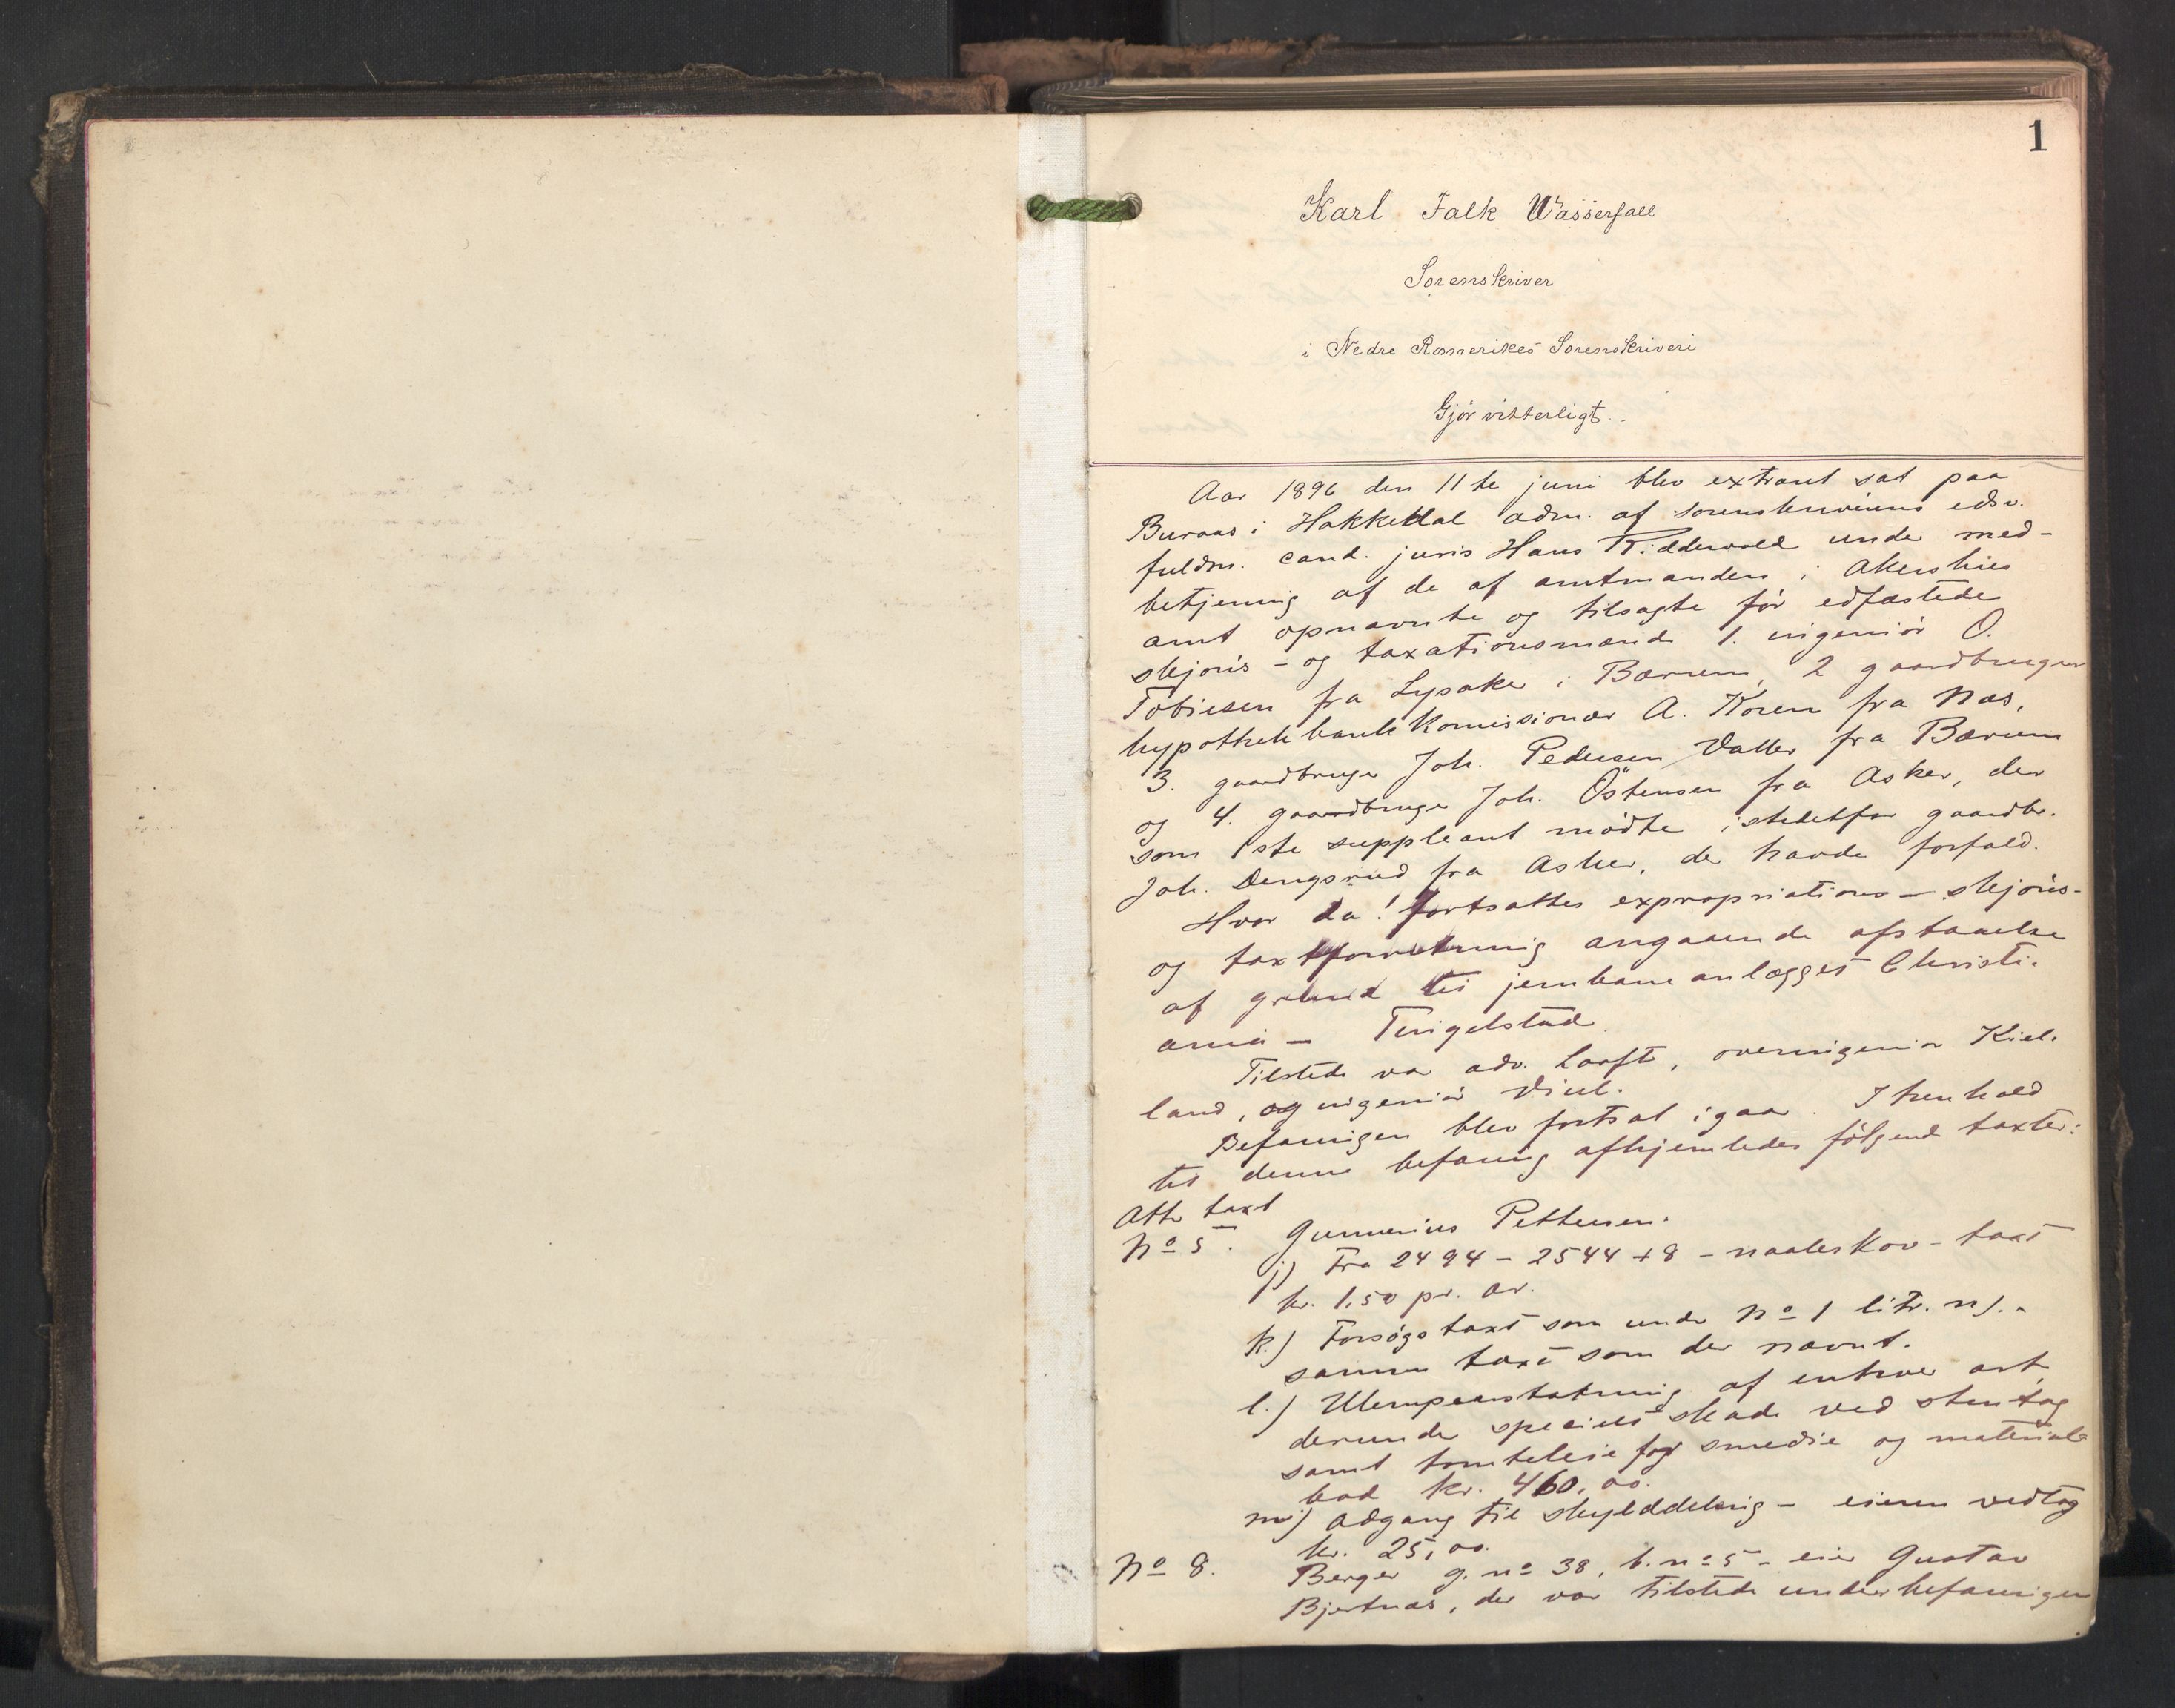 1
Karl Falk Wasserfall
Sorenskriver
i Nedre Romerikes Sorenskriveri
Gjør vitterligt.
Aar 1896 den 11te juni blev extraret sat paa
Buraas i Hakkedal adm. af sorenskriverens edsv.
fuldm. cand. juris Hans Riddervold under med-
betjening af de af amtmanden i Akershus
amt opnævnte og tilsagte før edfæstede
skjøns- og taxationsmænd 1. ingeniør O.
Tobiesen fra Lysaker i Bærum, 2 gaardbruger
hypothekbankkomissionær A. Koren fra Næs,
3. gaardbruger Joh. Pedersen Valler fra Bærum
og 4. gaardbruger Joh. Östensen fra Asker, der
som 1ste suppleant mødte istedetfor gaardbr.
Joh. Dengsrud fra Asker, der havde forfald.
Hvor da! fortsattes expropriations- skjøns-
og taxtforretning angaaende afstaaelse
af grund til jernbaneanlægget Christi-
ania - Tingelstad.
Tilstede var adv. Looft, overingeniør Kiel-
land, og ingeniør
Befaringen blev fortsat igaar. I henhold
til denne befaring afhjemledes følgende taxter:
Atter taxt
No 5. Gunnerius Pettersen.
j) Fra 2494 - 2544 + 8 - naaleskov - taxt
kr. 1,50 pr. ar.
k.) Forsøgstaxt som under No 1 litr. n). -
samme taxt som der nævnt.
l.) Ulempeerstatning af enhver art,
derunder specielt skade ved stentag
samt tomteleie for smedie og material-
bod kr. 460,00.
m) Adgang til skylddeling - eieren vedtog
kr. 25,00.
No 8. Berger g. no 38, b. no 5 - eier Gustav
Bjertnæs, der var tilstede under befaringen